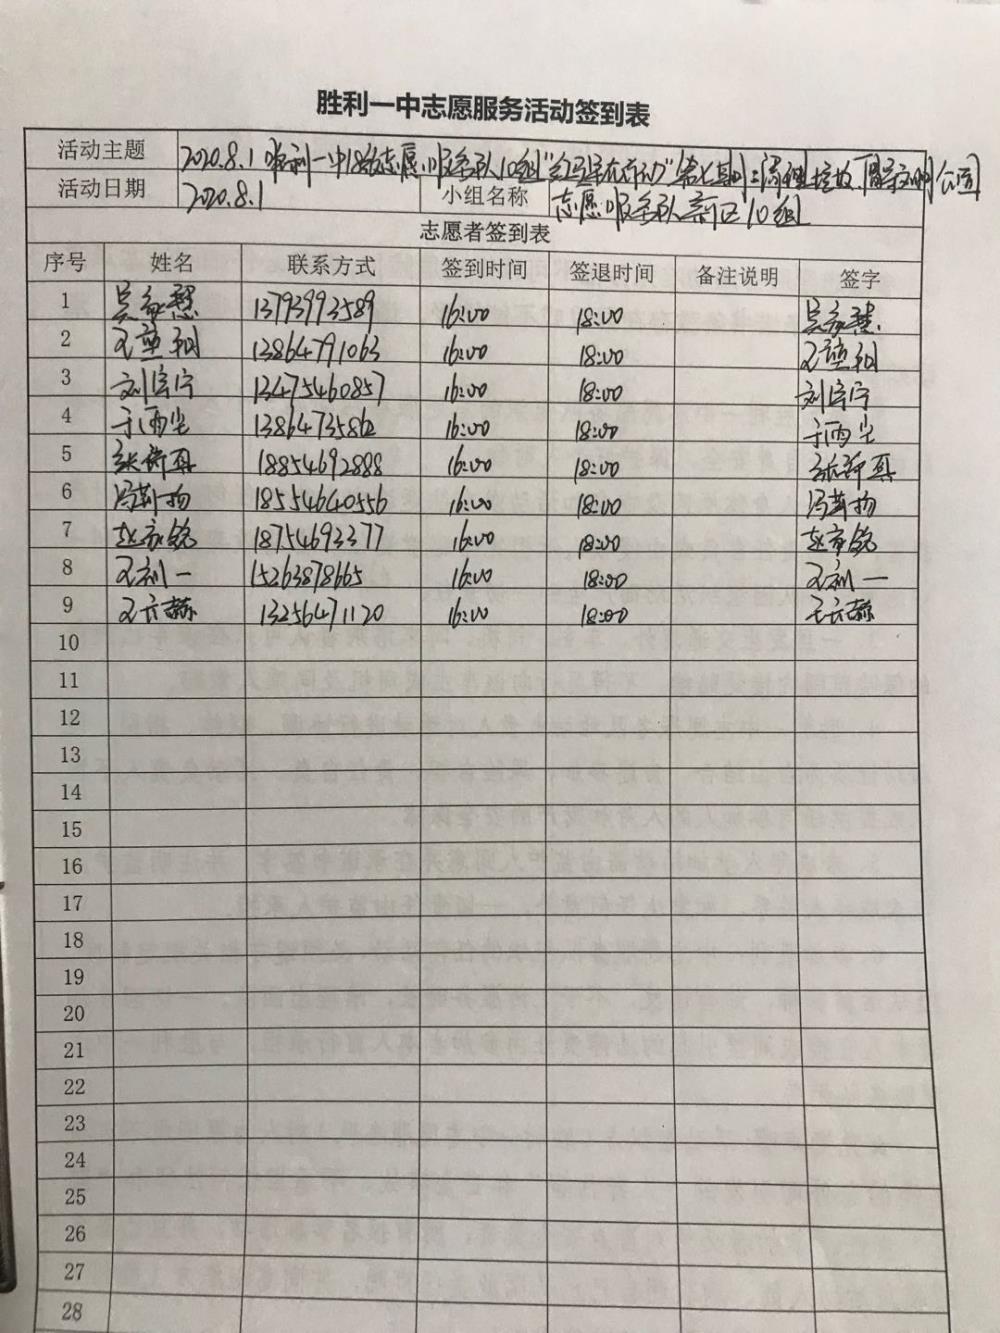 胜利一中志愿服务活动签到表
活动主题 2020.8.1胜利一中18级志愿服务队10组"红马甲在行动"第七期
活动日期 2020.8.1 小组名称 志愿服务队新区10组
志愿者签到表
序号 姓名 联系方式 签到时间 签退时间 备注说明 签字
1 吴家慧 13793993589 16:00 18:00 吴家慧
2 王 13864791063 16:00 18:00 王
3 刘宇宁 13475460857 16:00 18:00 刘宇宁
4 于雨尘 16:00 18:00 于雨尘
5 张 18854692888 16:00 18:00 张
6 冯 18554640556 16:00 18:00 冯
7 赵家铭 18754693377 16:00 18:00 赵家铭
8 王 一 15263878665 16:00 18:00 王 一
9 王云赫 13256471120 16:00 18:00 王云赫
10
11
12
13
14
15
16
17
18
19
20
21
22
23
24
25
26
27
28